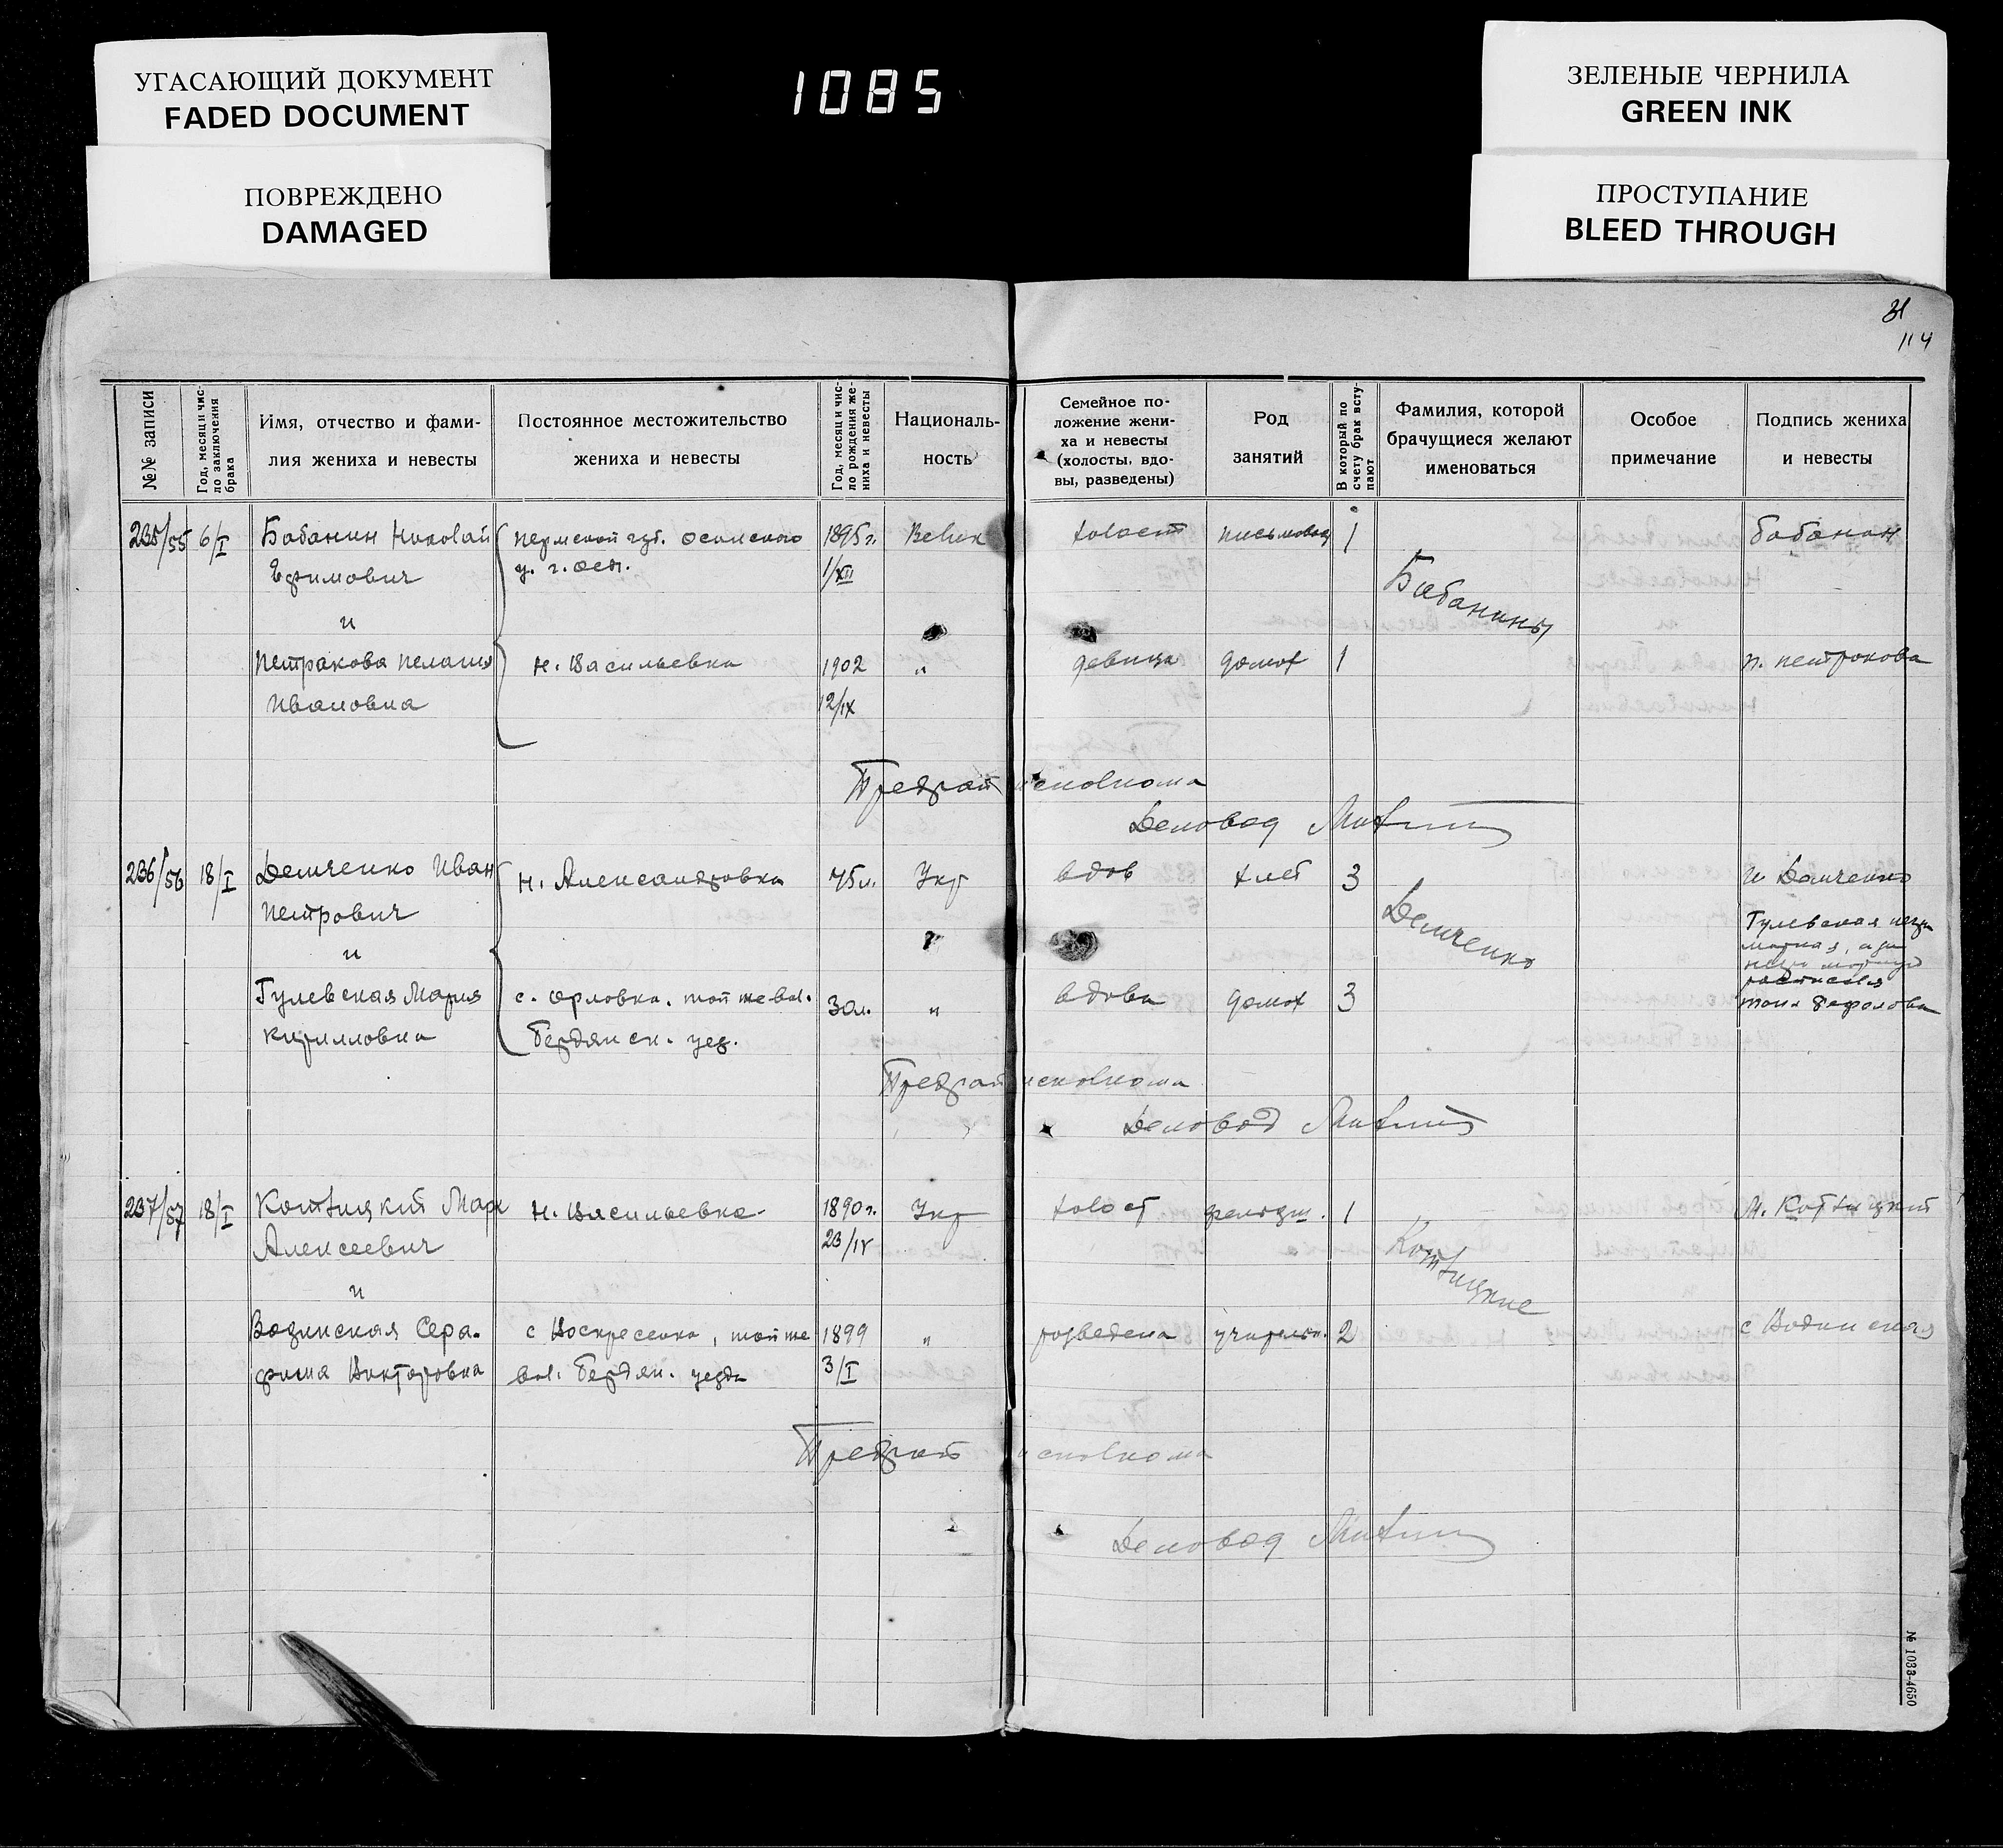 УГАСАЮЩИЙ ДОКУМЕНТ
FADED DOCUMENT
ПОВРЕЖДЕНО
DAMAGED
1085
ЗЕЛЕНЫЕ ЧЕРНИЛА
GREEN INK
ПРОСТУПАНИЕ
BLEED THROUGH
31
114
№№ записи
Год, месяц и чис-
ло заключения
брака
Имя, отчество и фами-
лия жениха и невесты
Постоянное местожительство
жениха и невесты
Год, месяц и чис-
ло рождения же-
ниха и невесты
Националь-
ность
Семейное по-
ложение жени-
ха и невесты
(холосты, вдо-
вы, разведены)
Род
занятий
В который по
счету брак всту-
пают
Фамилия, которой
брачущиеся желают
именоваться
Особое
примечание
Подпись жениха
и невесты
235/55 6/I Бабанин Николай Пермской губ. Осинского 1895 г. Велик холост письмовод 1 Бабанин
Ефимович у. г. Оса. 1/XII
Бабанины
и
Петракова Пелагия Н. Васильевка 1902 " девица домох 1 П. Петракова
Ивановна 12/IX
Предрай исполкома
Деловод
236/56 18/I Демченко Иван Н. Александровка 75 л. Укр вдов хлеб 3 И Демченко
Петрович Демченко Гулевская
и
Гулевская Мария с. Орловка, той же вол. 30 л. " вдова домох 3
Кирилловна Бердянск. уез.
Предрай исполкома
Деловод
237/57 18/I Котляцкий Марк Н. Васильевка 1890 г. Укр холост 1
Алексеевич 23/IV
и
Водинская Сера- с Воскресенка, той же 1899 " разведена учительн. 2 С Водинская
фима Викторовна вол. Бердян. уезда 3/I
Предрай исполкома
Деловод
№ 1033-4650